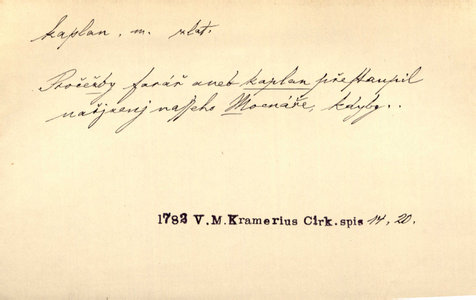 kaplan, m. vlat.
Pročežby farář aneb kaplan přestaupil
nařjzenj nasseho Mocnáře, kdyby..
1782 V.M.Kramerius Cirk.spis 14, 20.